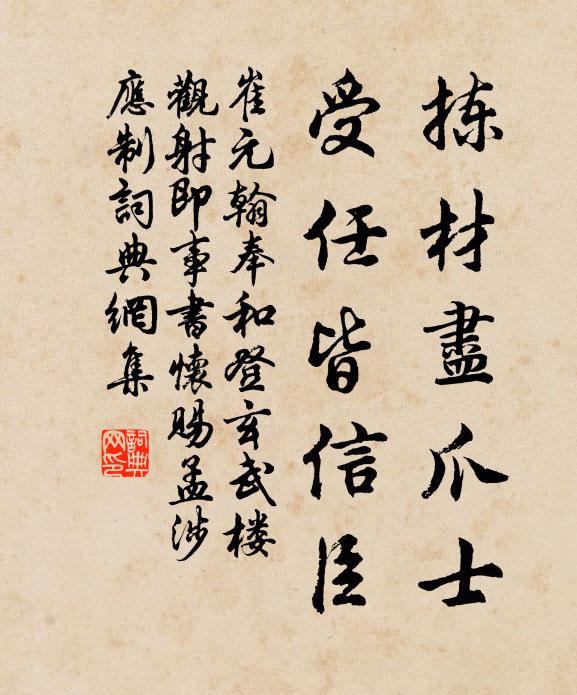 拣材盡爪士
受任皆信臣
崔元翰奉和登玄武楼
觀射即事書懷賜孟涉
應制詞典網集
詞典网印